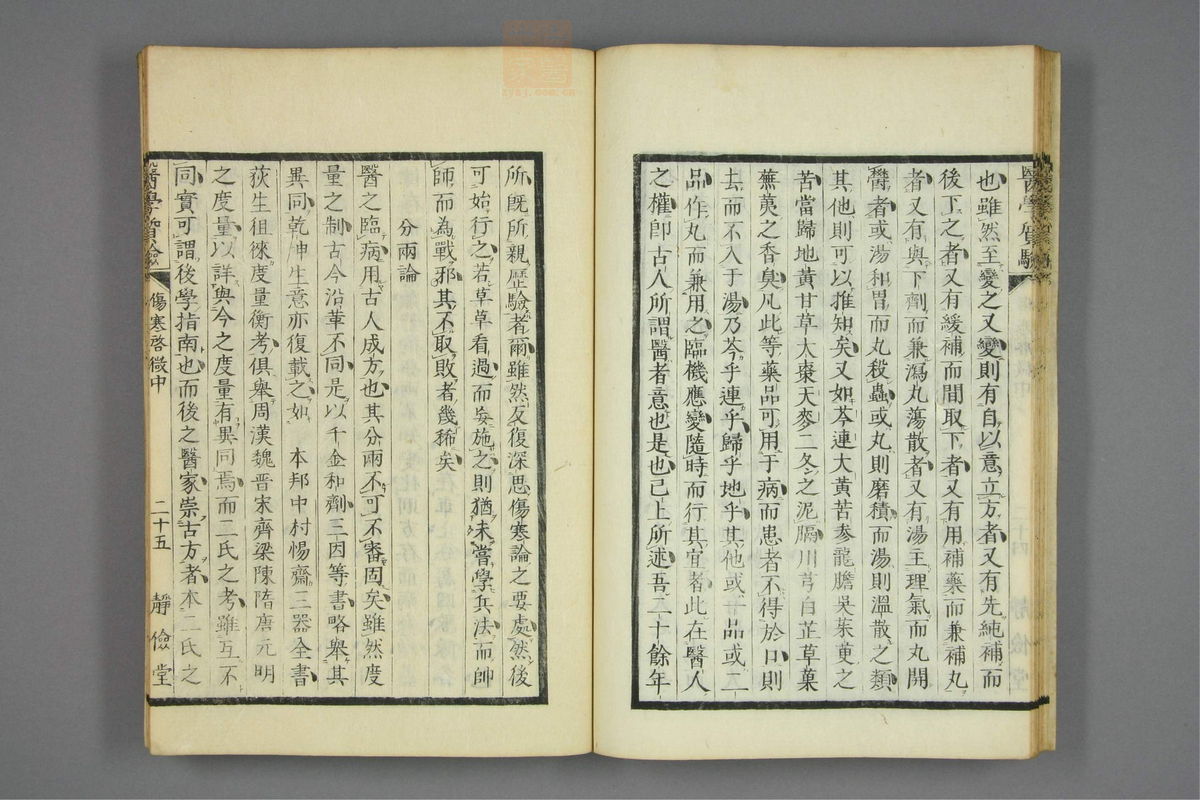 也雖然至變之又變則有自以意立方者又有先純補而
後下之者又有緩補而間取下者又有用補藥而兼補丸
者又有與下劑而兼瀉丸蕩散者又有湯主理氣而丸開
鬱者或湯和胃而丸殺蟲或丸則磨積而湯則溫散之類
其他則可以推知矣又如芩連大黃苦參龍膽吳茱萸之
苦當歸地黃甘草大棗天麥二冬之泥膈川芎白芷草菓
蕪荑之香臭凡此等藥品可用于病而患者不得於口則
去而不入于湯乃芩乎連乎歸乎地乎其他或一品或二
品作丸而兼用之臨機應變隨時而行其宜者此在醫人
之權卽古人所謂醫者意也是也已上所述吾二十餘年
醫學實驗
所既所親歷驗者爾雖然反復深思傷寒論之要處然後
可始行之若草草看過而妄施之則猶未嘗學兵法而帥
師而為戰邪其不取敗者幾稀矣
分兩論
醫之臨病用古人成方也其分兩不可不審固矣雖然度
量之制古今沿革不同是以千金和劑三因等書略舉其
異同乾坤生意亦復載之如 本邦中村惕齋三器全書
荻生徂徠度量衡考俱舉周漢魏晋宋齊梁陳隋唐元明
之度量以詳與今之度量有異同焉而二氏之考雖互不
同實可謂後學指南也而後之醫家崇古方者本二氏之
醫學實驗 傷寒啓微中 二十五 靜儉堂